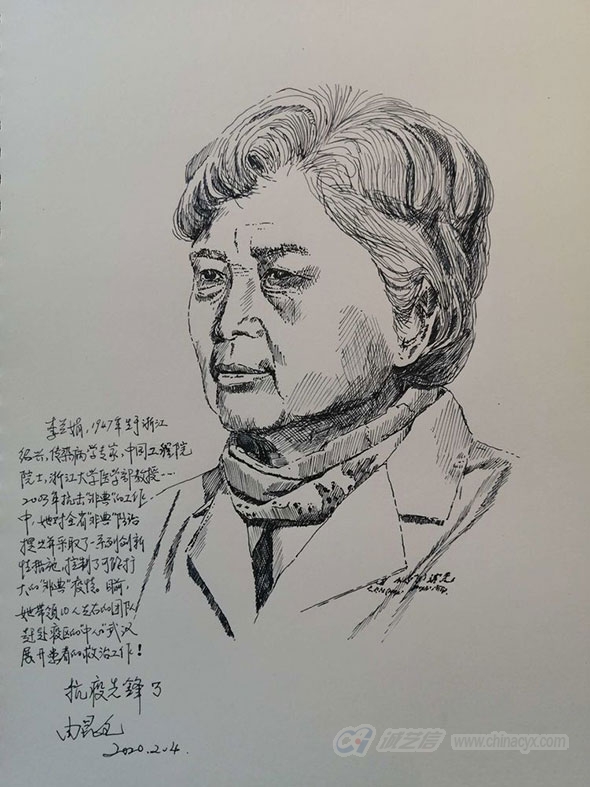 李兰娟，1947年生于浙江
绍兴，传染病学专家，中国工程院
院士，浙江大学医学部教授…
2003年抗击"非典"的工作
中，她对全省"非典"防治
提出并采取了一系列创新
性措施，控制了可能扩
大的"非典"疫情。目前，
她带领10人左右的团队
赶赴疫区的"中心"武汉
展开患者的救治工作！
抗疫先锋 3
2020.2.4.
诚艺信 www.chinacyx.com